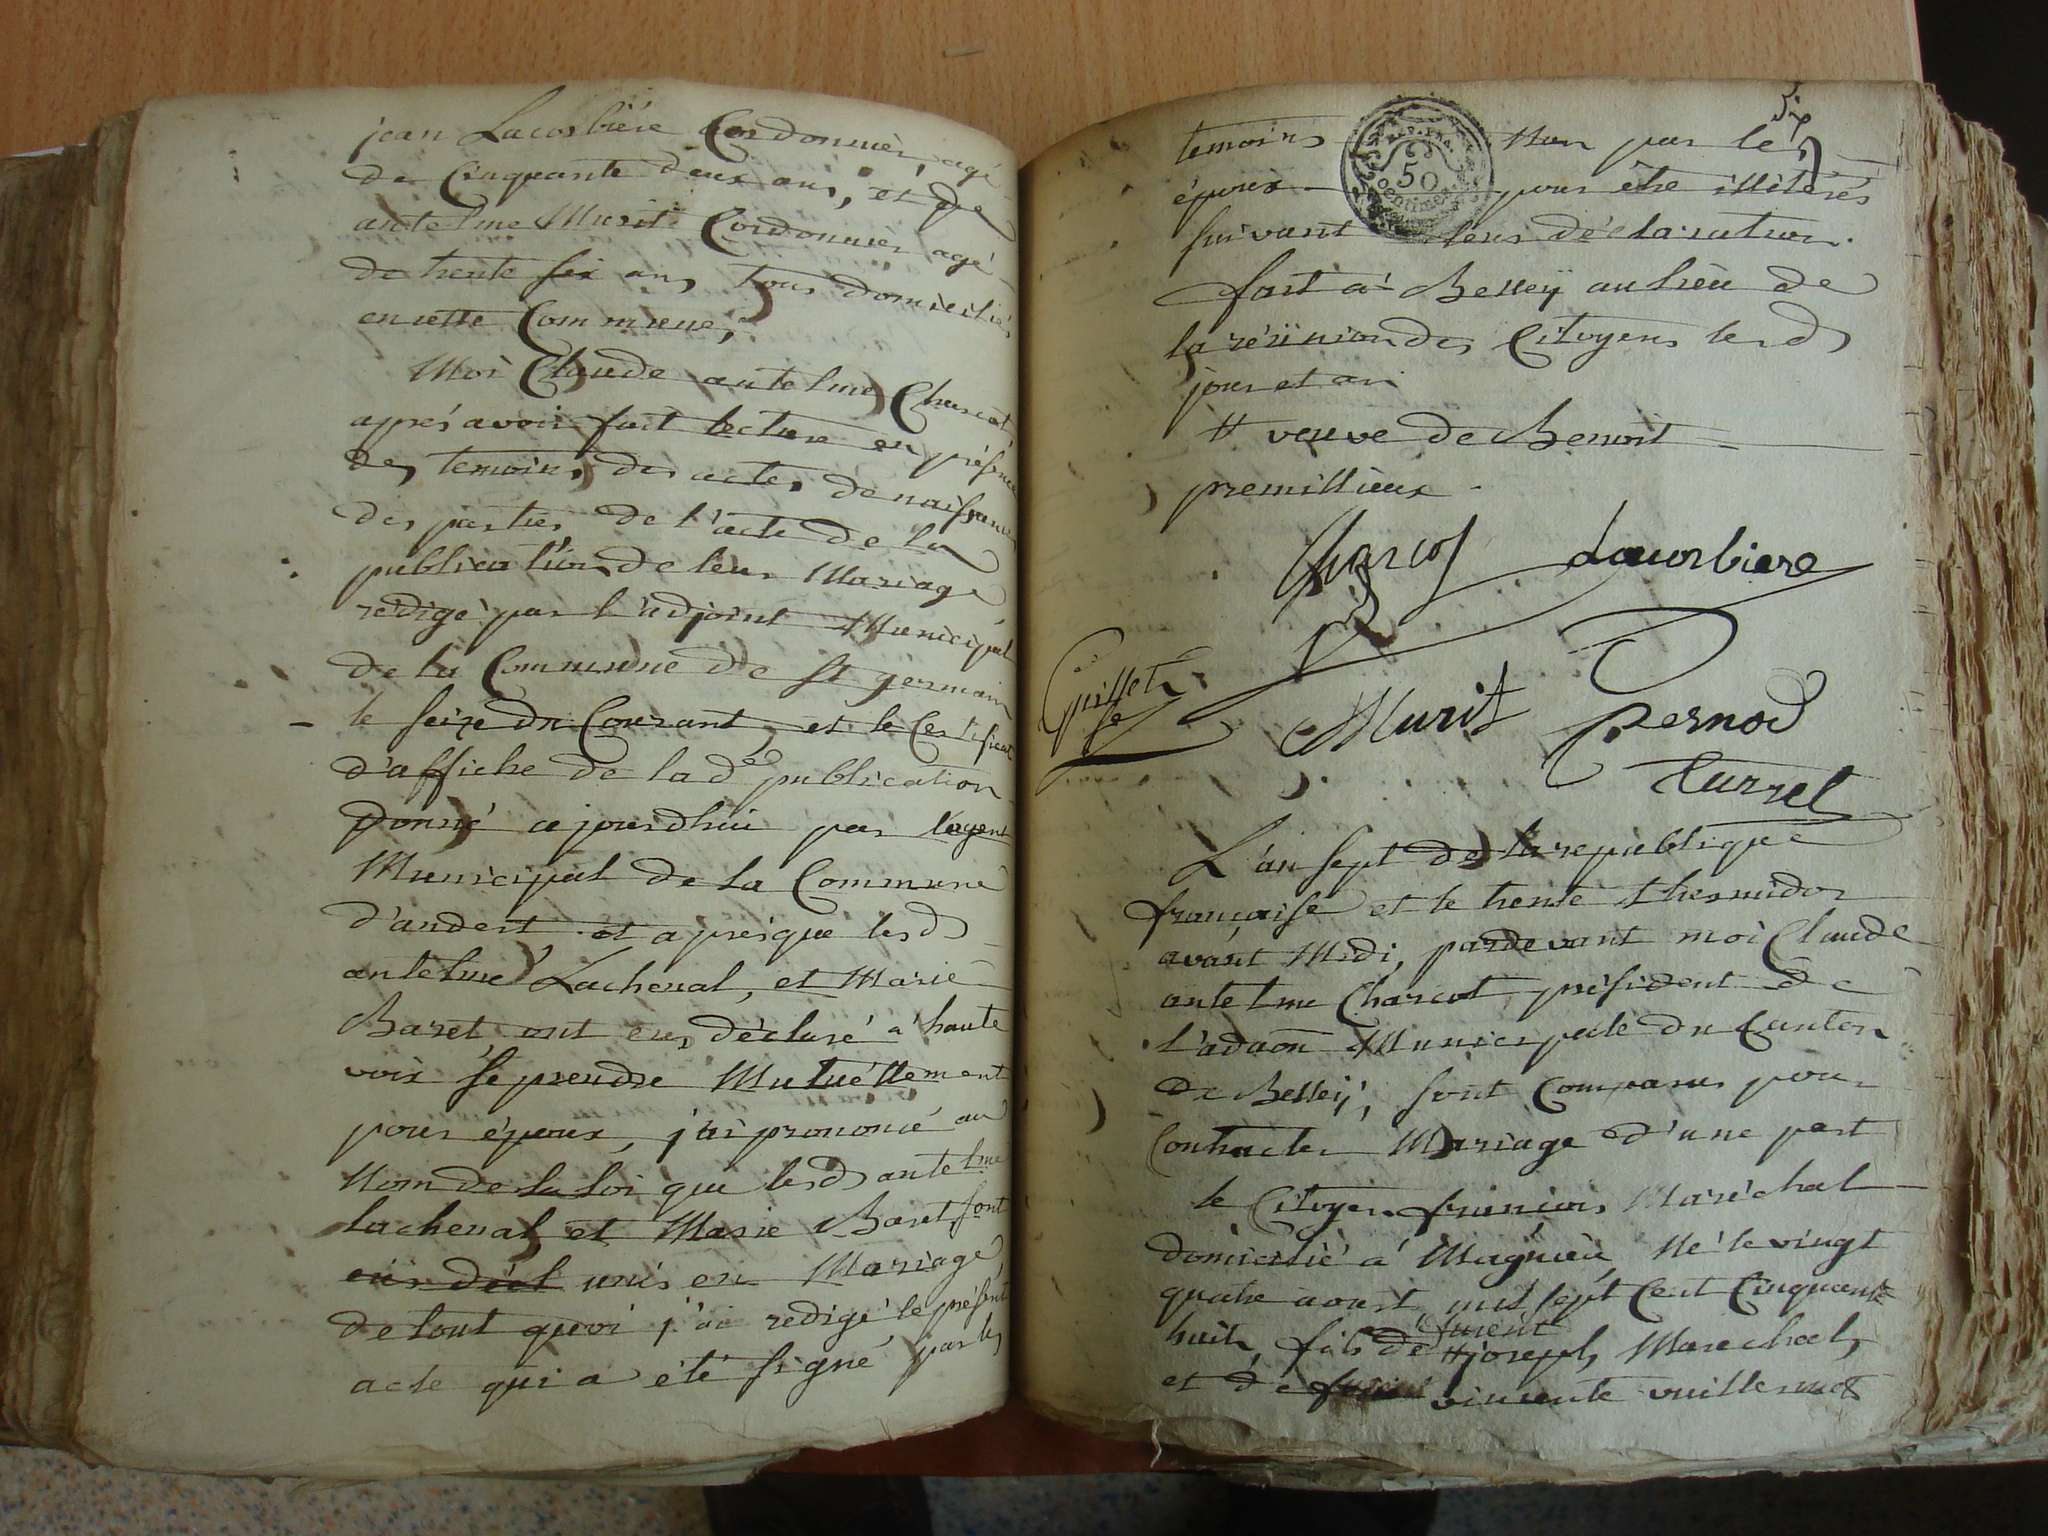 jean Lacorbiére Cordonnier, agé
de Cinquante deux ans, et de
antelme Murit Cordonnier agé
de trente six ans, tous domiciliés
en cette Commune,
Moi Claude antelme Charcot
aprés avoir fait lecture en présence
des temoins, des actes de naissance
des parties de l'acte de la
publication de leur Mariage
redigé par l'adjoint Municipal
de la Commune de St germain
le seize du Courant, et le Certificat
d'affiche de lade publication
Donné cejourdhui par l'agent
Municipal de la Commune
d'andert et aprésque lesd
antelme Lachenal, et Marie
Baret ont eu, déclaré a haute
voix se prendre Mutuéllement
pour époux, j'ai prononcé au
Nom de la loi que lesd antelme
lachenal et Marie Baret sont
unis en Mariage
de tout quoi j'ai redigé le présent
acte qui a été signé par les
temoins Non par les
époux pour étre illiterés
suivant leur déclaration.
fait a Belley au lieu de
la réunion des Citoyens lesd
jour et an
# veuve de Benoit
premillieux.
Charcot Lacorbiere
Murit Pernod
Gpillet
L'an sept de la republique
française et le trente thermidor
avant Midi, pardevant moi Claude
antelme Charcot président de
l'adaon Municipale du Canton
de Belley, sont Comparus pour
Contracter Mariage d'une part
le Citoyen françois Maréchal
domicilié a Magnieu, Né le vingt
quatre aoust mil sept Cent Cinquante
huit, fils de # joseph Marechal,
furent
et de vincente vuillermet
50
Centimes